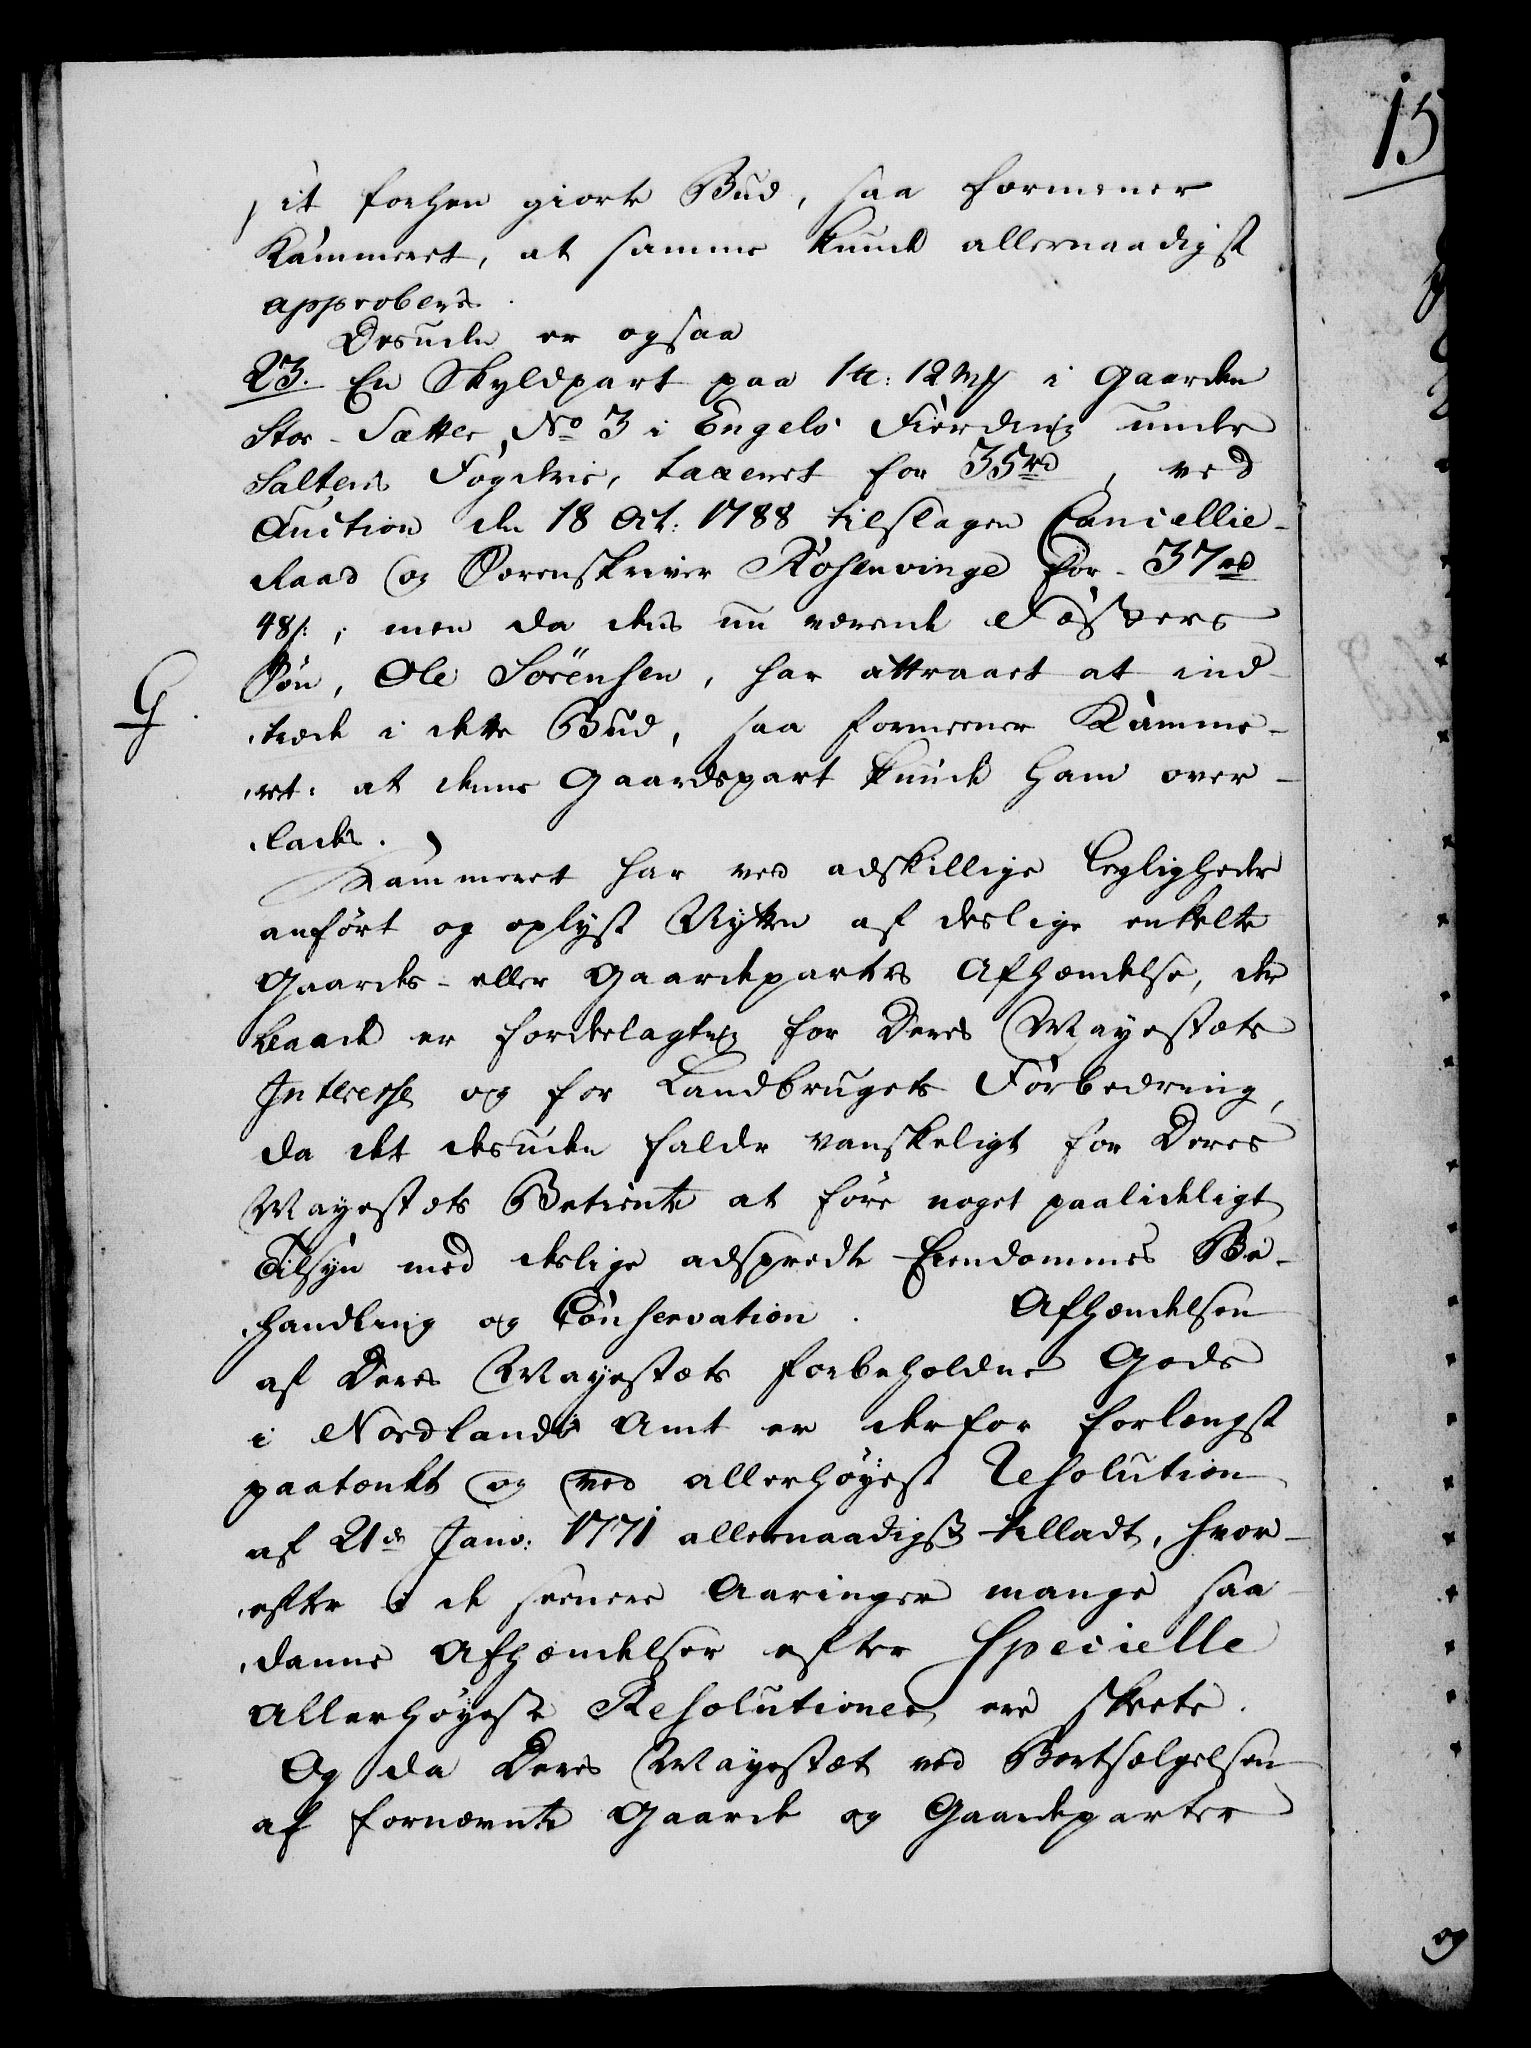 15
sit forhen giorte Bud, saa formener
Kammeret, at samme kunde allernaadigst
approberes.
Desuden er ogsaa
23. En Skyldpart paa 1 12 i Gaarden
Stor-Sætter, No 3 i Engeløe Fierding under
Saltens Fogderie, taxeret for 35 rd, ved
Auction den 18 Oct: 1788 tilslagen Cancellie-
Raad og Sorenskriver Rosenvinge for 37 rd
48 s:; men da dens nu værende Fæsters
G. Søn, Ole Sörensen, har attraaet at ind-
træde i dette Bud, saa formeener Kamme-
ret: at denne Gaardspart kunde ham over-
lades.
Kammeret har ved adskillige Leyligheder
anført og oplyst Nytten af deslige enkelte
Gaardes- eller Gaardeparters Afhændelse, der
baade er fordelagtig for Deres Mayestæts
Interesse og for Landbrugets Forbedring,
da det desuden falder vanskeligt for Deres
Mayestæts Betiente at føre noget paalideligt
Tilsyn med deslige adspredte Eiendommes Be-
handling og Conservation. Afhændelsen
af Deres Mayestæts forbeholdne Gods
i Nordlands Amt er derfor forlængst
paatænkt og ved allerhøyest Resolution
af 21de Janv: 1771 allernaadigst tilladt, hvor-
efter i de seenere Aaringer mange saa-
danne Afhændelser efter Specielle
Allerhøyeste Resolutioner ere skeete.
Og da Deres Mayestæt ved Bortsælgelsen
af fornævnte Gaarde og Gaardeparter
og